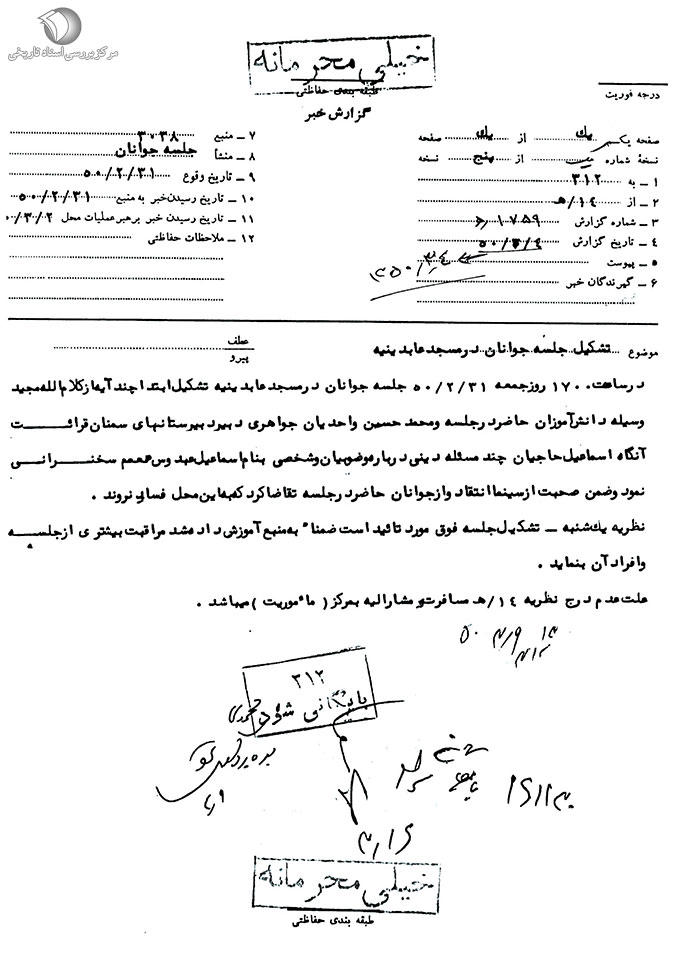 مرکز بررسی اسناد تاریخی
خیلی محرمانه
طبقه بندی حفاظتی
گزارش خبر
درجه فوریت
صفحه یک از یک صفحه
نسخهٔ شماره از پنج نسخه
۱ ـ به ۳۱۲
۲ ـ از ۱۴/ه
۳ ـ شماره گزارش ۱۷۵۹
۴ ـ تاریخ گزارش
۵ ـ پیوست
۶ ـ گیرندگان خبر
۷ ـ منبع ۳۰۳۸
۸ ـ منشأ جلسه جوانان
۹ ـ تاریخ وقوع ۵۰/۲/۳۱
۱۰ ـ تاریخ رسیدن خبر به منبع ۵۰/۲/۳۱
۱۱ ـ تاریخ رسیدن خبر برهبر عملیات محل ۵۰/۳/۲
۱۲ ـ ملاحظات حفاظتی
موضوع تشکیل جلسه جوانان در مسجد عابدینیه
عطف
پیرو
در ساعت ۱۷۰۰ روز جمعه ۵۰/۲/۳۱ جلسه جوانان در مسجد عابدینیه تشکیل ابتدا چند آیه از کلام الله مجید
وسیله دانش آموزان حاضر در جلسه و محمد حسین واحدیان جواهری دبیر دبیرستانهای سمنان قرائت
آنگاه اسماعیل حاجیان چند مسئله دینی درباره وضو بیان و شخصی بنام اسماعیل عبدوس معمم سخنرانی
نمود و ضمن صحبت از سینما انتقاد و از جوانان حاضر در جلسه تقاضا کرد که به این محل فساد نروند .
نظریه یکشنبه ـ تشکیل جلسه فوق مورد تائید است ضمناً به منبع آموزش داده شد مراقبت بیشتری از جلسه
و افراد آن بنماید .
علت عدم درج نظریه ۱۴/ه مسافرت مشارالیه به مرکز ( ماموریت ) میباشد .
۳۱۲
بایگانی شود
خیلی محرمانه
طبقه بندی حفاظتی